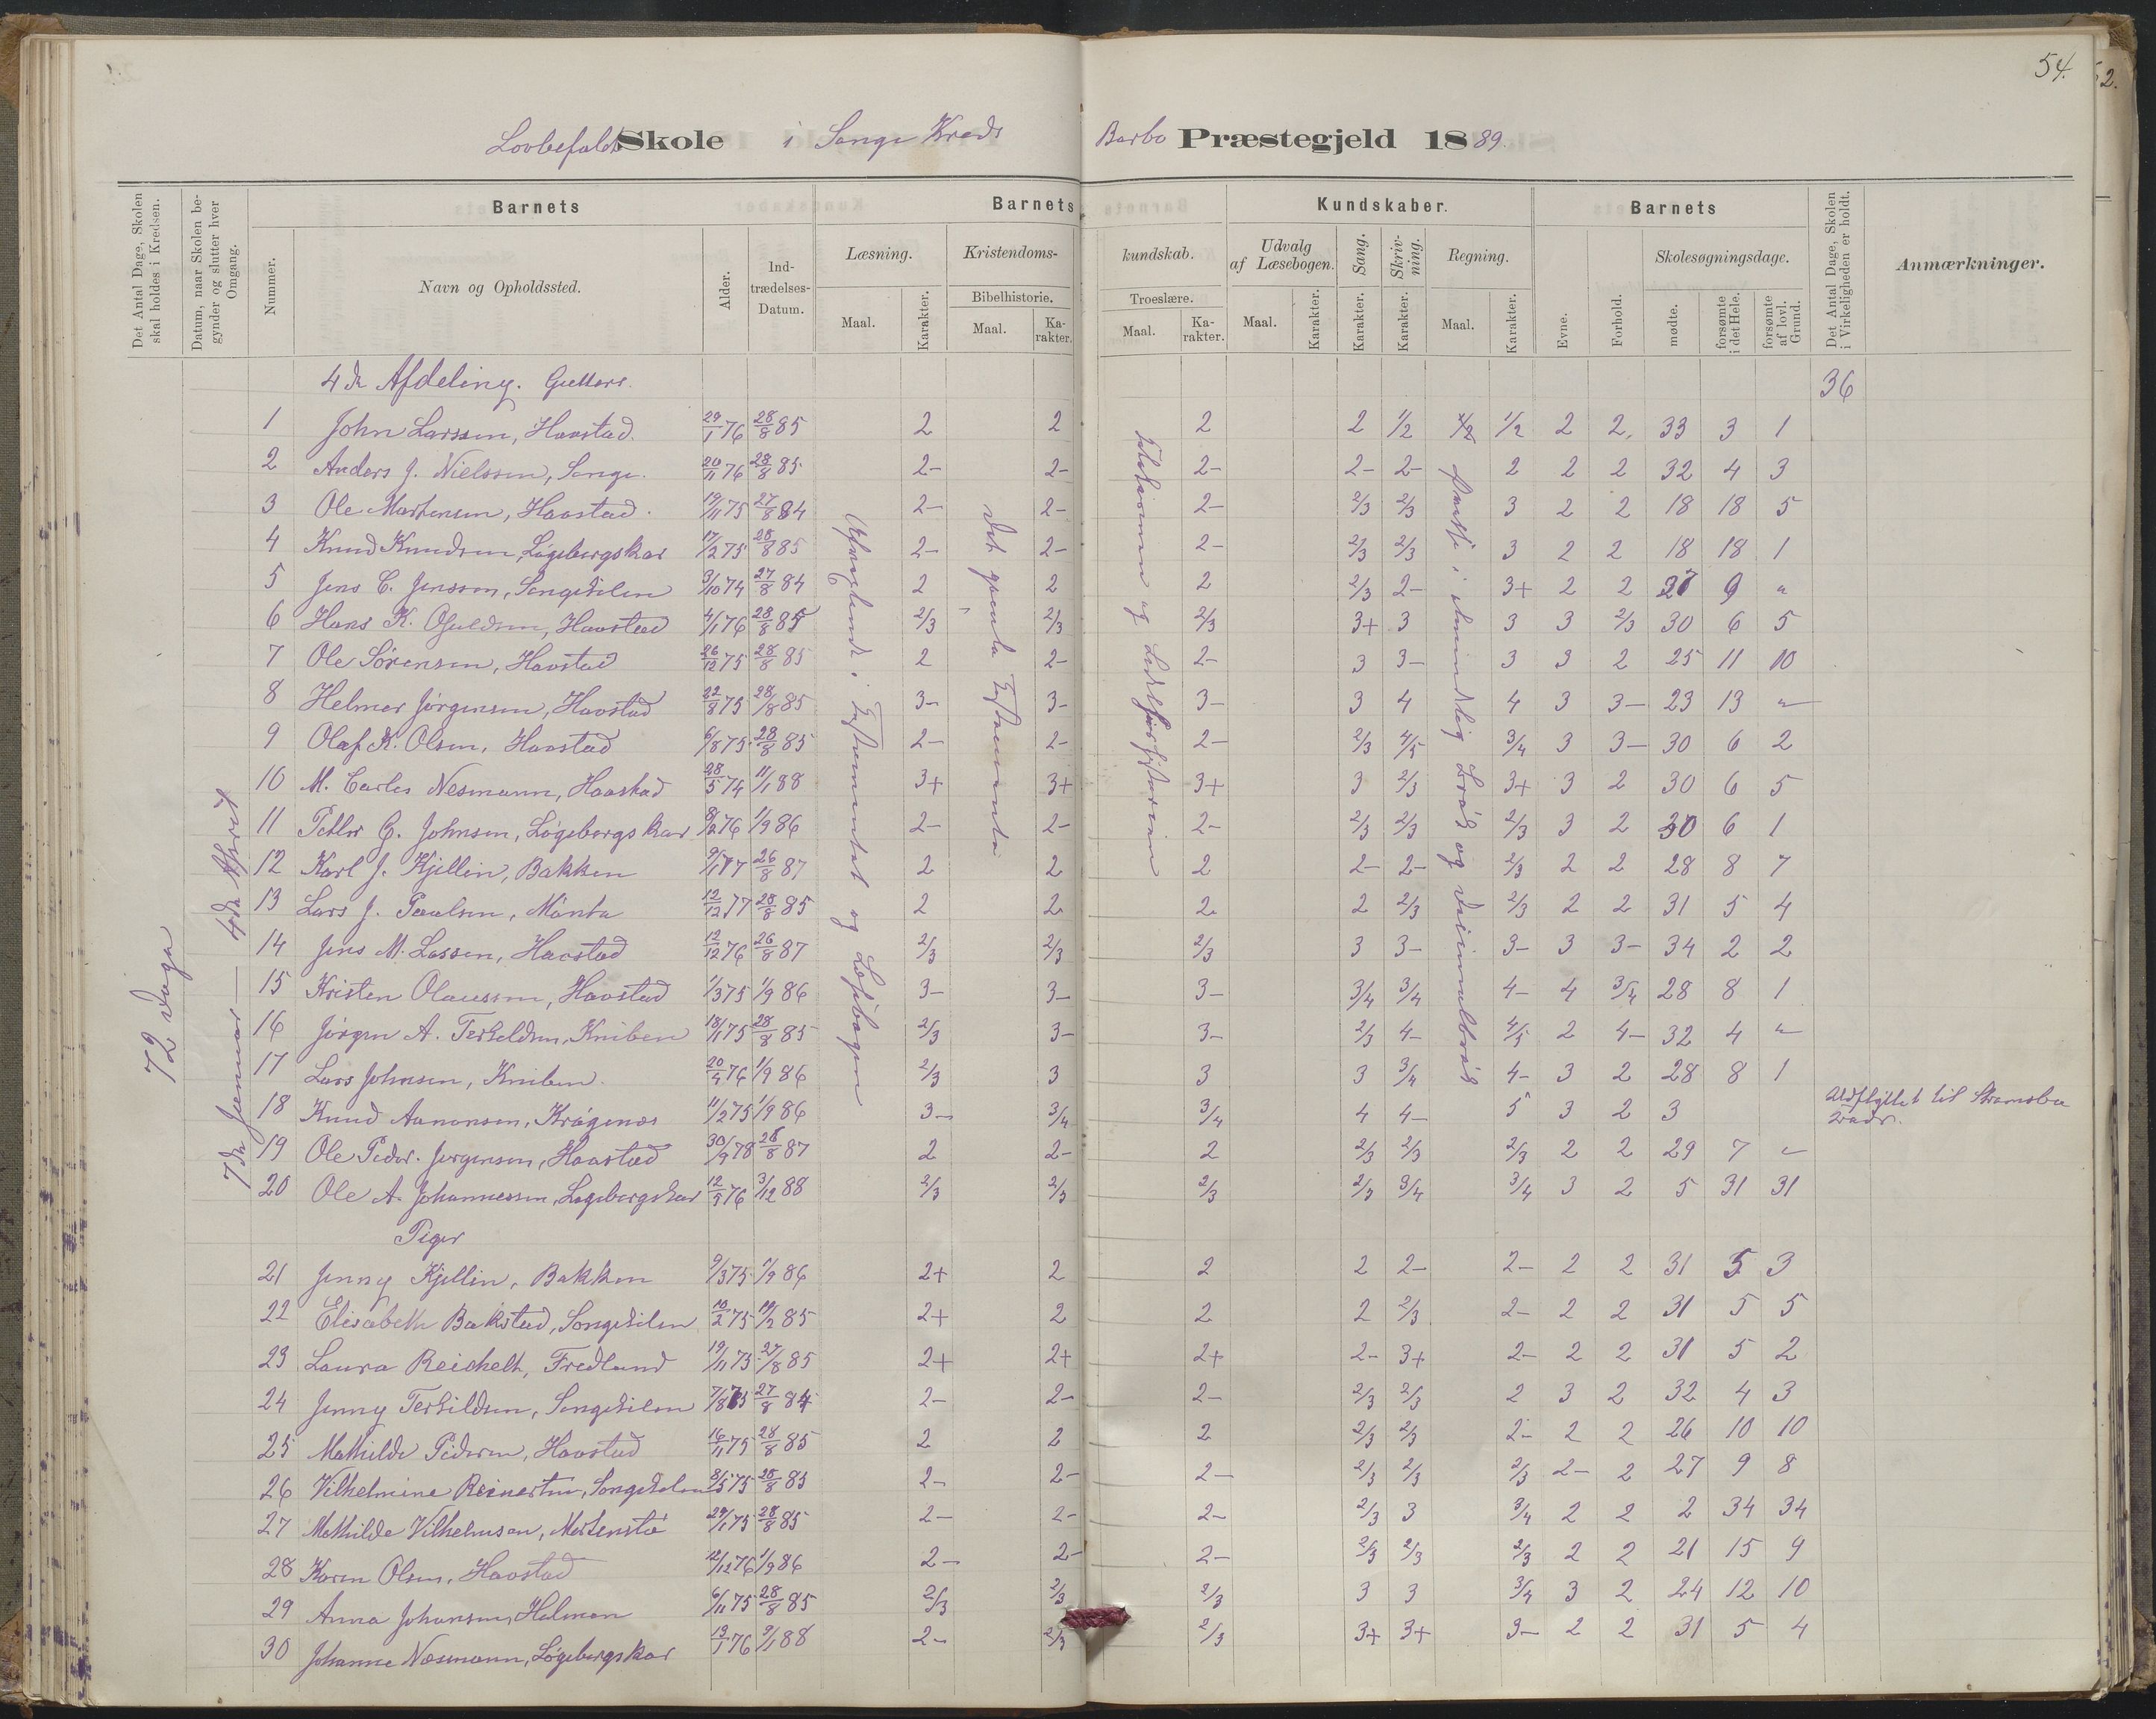 54.
Lovbefaldt Skole i Songe Kreds Barbo Præstegjeld 1889.
Det Antal Dage, Skolen skal holdes i Kredsen.
Datum, naar Skolen begynder og slutter hver Omgang.
Barnets
Nummer. Navn og Opholdssted. Alder. Indtrædelses-Datum.
Barnets Kundskaber.
Læsning. Maal. Karakter.
Kristendomskundskab.
Bibelhistorie. Maal. Karakter.
Troeslære. Maal. Karakter.
Udvalg af Læsebogen. Maal. Karakter.
Sang. Karakter.
Skrivning. Karakter.
Regning. Maal. Karakter.
Barnets
Evne. Forhold.
Skolesøgningsdage.
mødte. forsømte i det Hele. forsømte af lovl. Grund.
Det Antal Dage, Skolen i Virkeligheden er holdt.
Anmærkninger.
72 Dage
7de Januar — 4de April
4de Afdeling. Gutter. 36
1 John Larssen, Havstad. 29/1 76 28/8 85 2 2 2 2 1/2 1/2 1/2 2 2. 33 3 1
2 Anders J. Nielssen, Songe. 20/11 76 28/8 85 2- 2- 2- 2- 2- 2 2 2 32 4 3
3 Ole Mortensen, Havstad. 19/11 75 27/8 84 2- 2- 2- 2/3 2/3 3 2 2 18 18 5
4 Knud Knudsen, Løgebergskar 17/2 75 28/8 85 2- 2- 2- 2/3 2/3 3 2 2 18 18 1
5 Jens C. Jenssen, Songekilen 3/10 74 27/8 84 2 2 2 2/3 2- 3+ 2 2 27 9 "
6 Hans K. Osuldsen, Havstad 4/1 76 28/8 85 2/3 2/3 2/3 3+ 3 3 3 2/3 30 6 5
7 Ole Sørensen, Havstad 26/12 75 28/8 85 2 2- 2- 3 3- 3 3 2 25 11 10
8 Helmer Jørgensen, Havstad 22/8 75 28/8 85 3- 3- 3- 3 4 4 3 3- 23 13 "
9 Olaf K. Olsen, Havstad 6/8 75 28/8 85 2- 2- 2- 2/3 4/5 3/4 3 3- 30 6 2
10 M. Carles Nesmann, Havstad 28/5 74 11/1 88 3+ 3+ 3+ 3 2/3 3+ 3 2 30 6 5
11 Petter G. Johnsen, Løgebergskar 8/2 76 1/9 86 2- 2- 2- 2/3 2/3 2/3 3 2 30 6 1
12 Karl J. Kjellin, Bakken 9/1 77 26/8 87 2 2 2 2- 2- 2/3 2 2 28 8 7
13 Lars J. Paulsen, Mønta 12/12 77 28/8 85 2 2 2 2 2/3 2/3 2 2 31 5 4
14 Jens M. Lassen, Havstad 12/12 76 26/8 87 2/3 2/3 2/3 3 3- 3- 3 3- 34 2 2
15 Kristen Olaussen, Havstad 1/3 75 1/9 86 3- 3- 3- 3/4 3/4 4- 4 3/4 28 8 1
16 Jørgen A. Terkeldsen, Kniben 18/1 75 28/8 85 2/3 3- 3- 2/3 4- 4/5 2 4- 32 4 "
17 Lars Johnsen, Kniben. 20/4 76 1/9 86 2/3 3 3 3 3/4 4- 3 2 28 8 1
18 Knud Aanonsen, Krøgenes 11/2 75 1/9 86 3- 3/4 3/4 4 4- 5 3 2 3 Udflyttet til Strømsbu
Kreds.
19 Ole Peder. Jørgensen, Havstad 30/9 78 26/8 87 2 2- 2 2/3 2/3 2/3 2 2 29 7 "
20 Ole A. Johannessen, Løgebergskar 12/5 76 3/12 88 2/3 2/3 2/3 2/3 3/4 3/4 3 2 5 31 31
Piger
21 Jenny Kjellin, Bakken 9/3 75 1/9 86 2+ 2 2 2 2- 2- 2 2 31 5 3
22 Elisabeth Bakstad, Songekilen 10/2 75 19/2 85 2+ 2 2 2 2/3 2- 2 2 31 5 5
23 Laura Reichelt, Fredlund 19/11 75 27/8 85 2+ 2+ 2+ 2- 3+ 2- 2 2 31 5 2
24 Jenny Terkildsen, Songekilen 7/8 75 27/8 84 2- 2- 2- 2/3 2/3 2 3 2 32 4 3
25 Mathilde Pedersen, Havstad 16/11 75 28/8 85 2 2 2 2/3 2/3 2- 2 2 26 10 10
26 Vilhelmine Reinertsen, Songekilen 8/5 75 28/8 85 2- 2- 2- 2/3 2/3 2/3 2- 2 27 9 8
27 Mathilde Vilhelmsen, Mortenstø 29/1 75 28/8 85 2- 2- 2- 2/3 3 3/4 2 2 2 34 34
28 Karen Olsen, Havstad 12/12 76 1/9 86 2- 2- 2- 2/3 2/3 2/3 2 2 21 15 9
29 Anna Johansen, Holmen 6/11 75 28/8 85 2/3 2/3 2/3 3 3 3/4 3 2 24 12 10
30 Johanne Nesmann, Løgebergskar 13/1 76 9/1 88 2- 2/3 2/3 3+ 3+ 3- 2 2 31 5 4
i Testementet og Læsebogen
Det gamle Testamente
og
i og Decimalbrøk